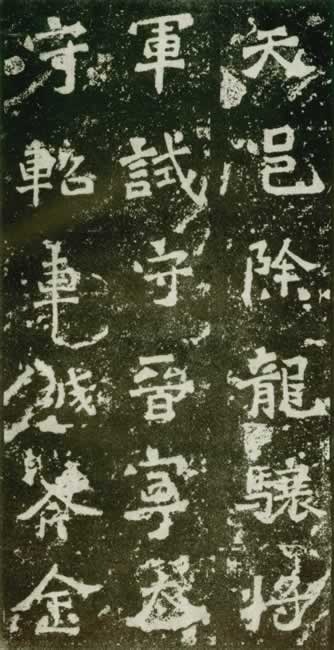 天邑除龍驤將
軍試守晉寧太
守軺車越斧金